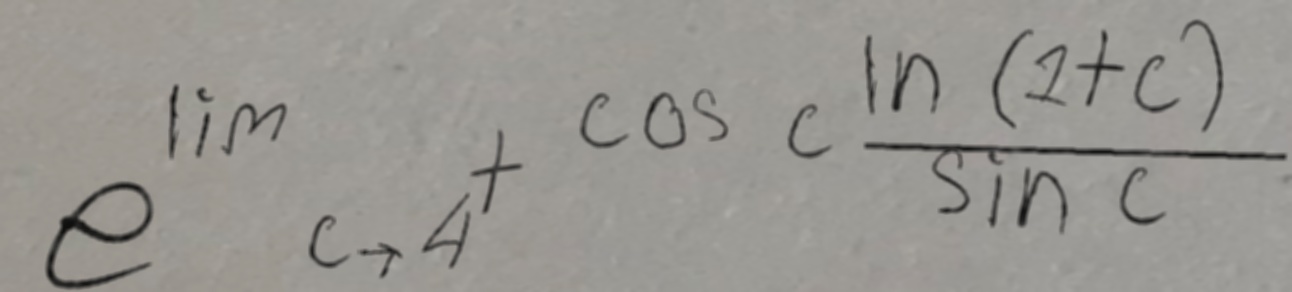 e^{\lim_{c \to 4^+} \cos c \frac{\ln (2+c)}{\sin c}}